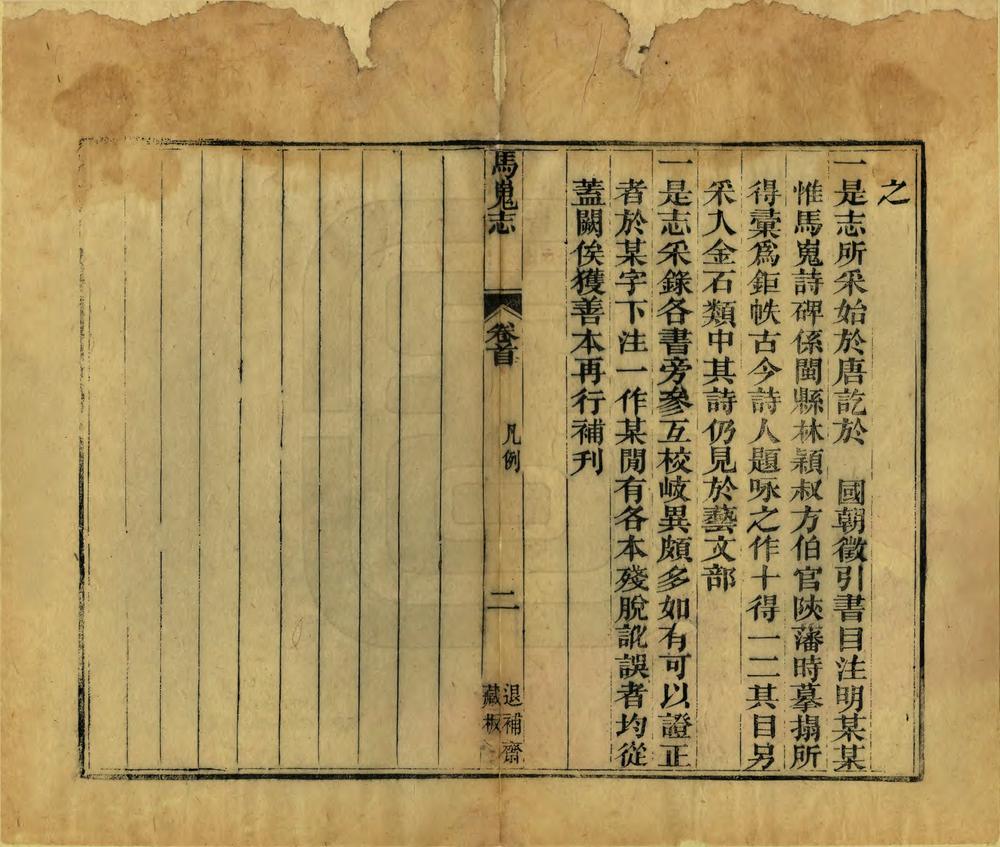 之
一是志所采始於唐訖於　國朝徵引書目注明某某
惟馬嵬詩碑係閩縣林穎叔方伯官陝藩時摹搨所
得彙爲鉅帙古今詩人題咏之作十得一二其目另
采入金石類中其詩仍見於藝文部
一是志采錄各書旁參互校岐異頗多如有可以證正
者於某字下注一作某閒有各本殘脫訛誤者均從
蓋闕俟獲善本再行補刋
馬嵬志
卷首
凡例
二
退補齋
藏板